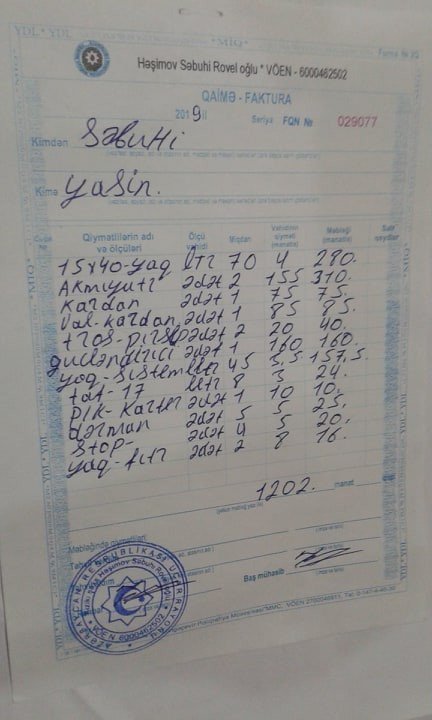 YDL * YDL
*MİQ*
Forma № 25
Həşimov Səbuhi Rovel oğlu * VÖEN - 6000462502
QAİMƏ - FAKTURA
2019 il Seriya FQN № 029077
Kimdən Səbuhi
Kimə Yasin.
Qiymətlilərin adı və ölçüləri Ölçü vahidi Miqdarı Vahidinin qiyməti (manatla) Məbləği (manatla)
15x40-yag ltr 70 4 280.
Akmiyatr ədət 2 155 310.
Kardan ədət 1 75 75.
Val-kardan ədət 1 85 85.
tros- ədət 2 20 40.
gücləndirici ədət 1 160 160.
yag-sistem ltr 45 3,5 157,5.
tat-17 ltr 8 3 24.
pik-karter ədət 1 10 10.
dərman ədət 5 5 25.
stop- ədət 4 5 20.
yag-fltr ədət 2 8 16.
1202. manat
Məbləğində qiymətliləri
Baş mühasib
AZƏRBAYCAN RESPUBLİKASI UCAR RAYONU
Həşimov Səbuhi Rovel oğlu
VÖEN 6000462502